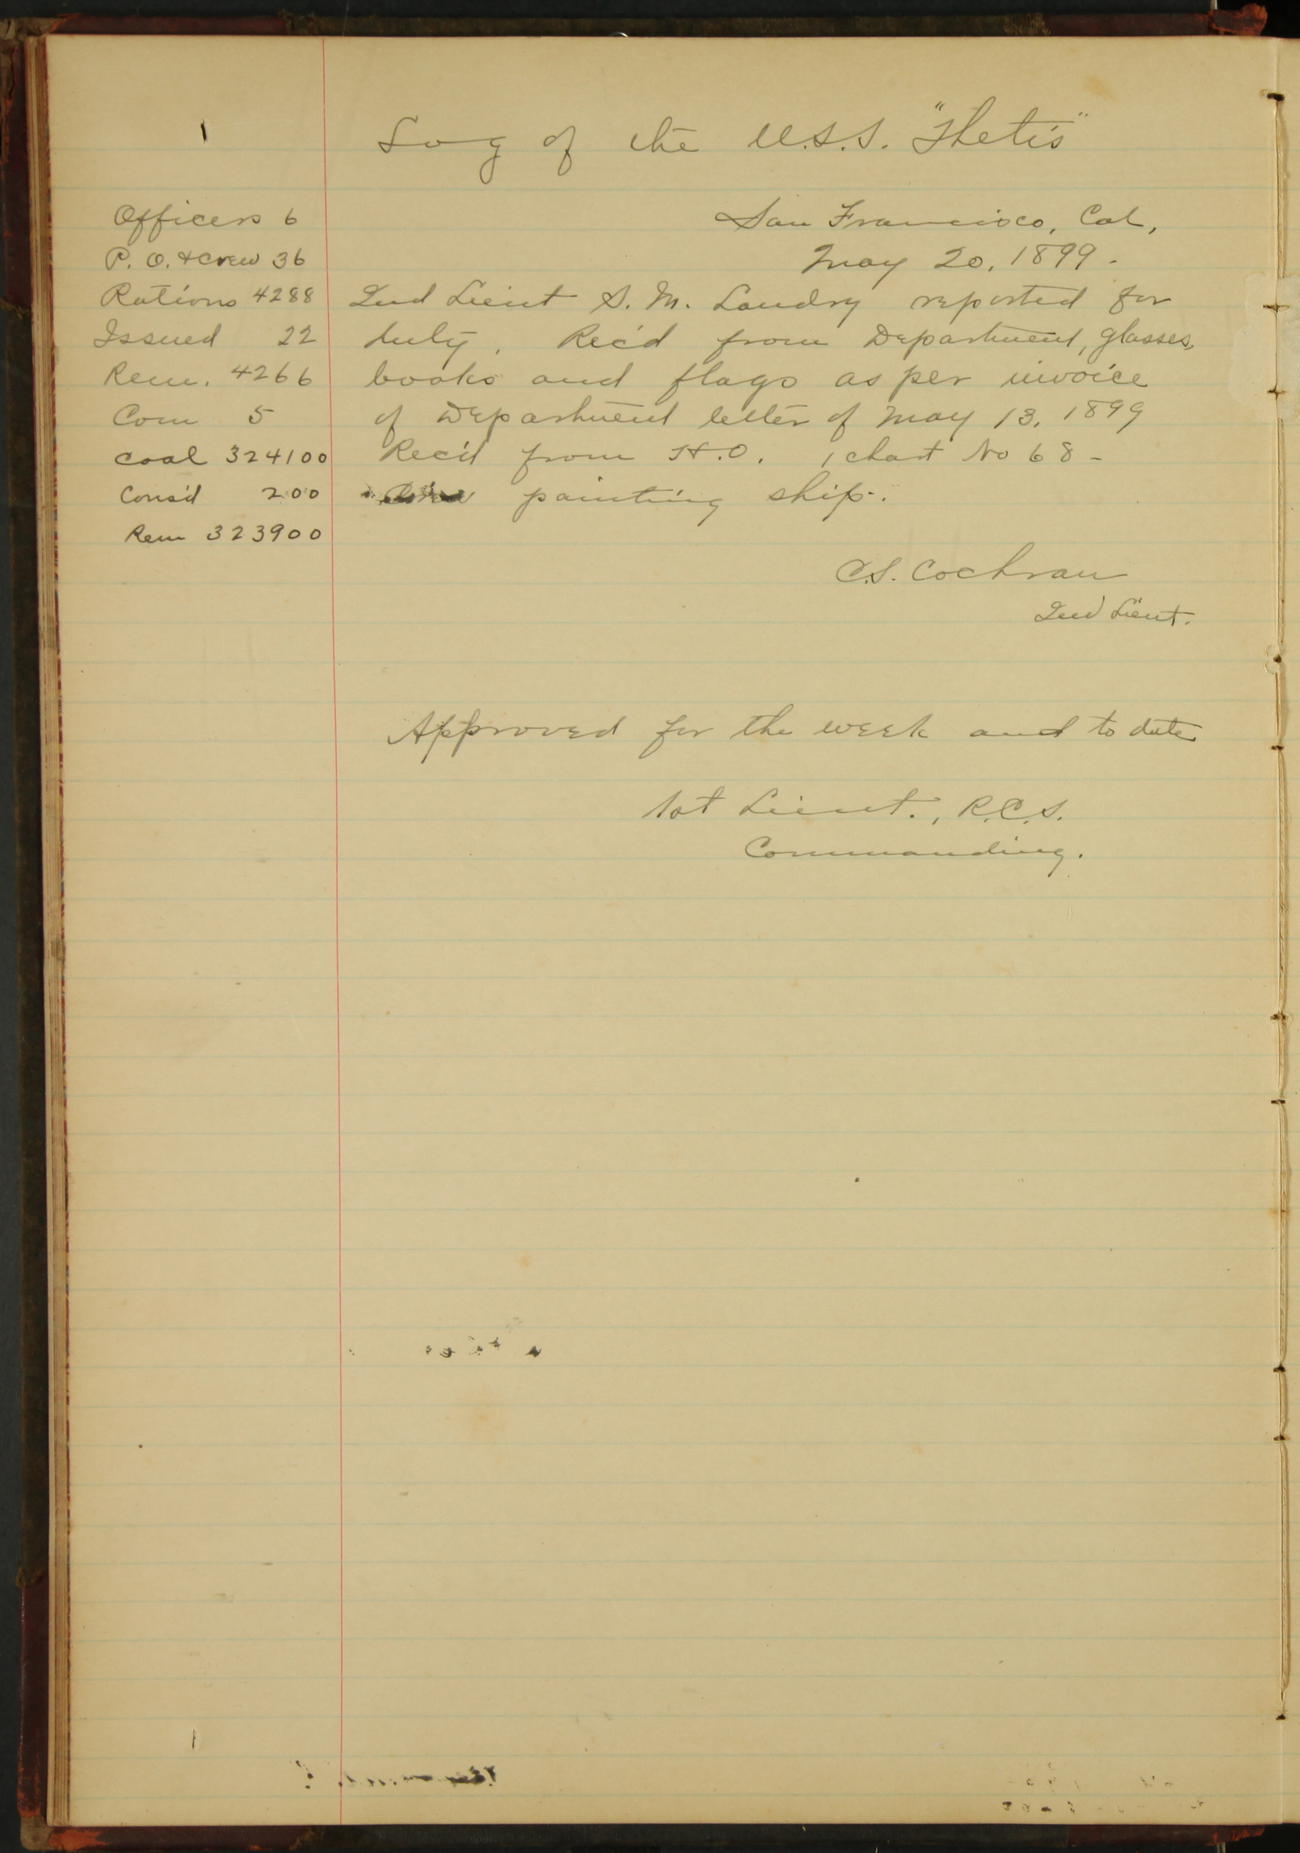 1
Log of the U.S.S. "Thetis"
San Francisco, Cal,
May 20, 1899.
Officers 6
P. O. & Crew 36
Rations 4288
Issued 22
Rem. 4266
Com 5
Coal 324100
Cons'd 200
Rem 323900
2nd Lieut S. M. Landry reported for
duty. Rec'd from Department, glasses,
books and flags as per invoice
of Department letter of May 13, 1899
Rec'd from H.O. 1 chart No 68 -
painting ship.
C.S. Cochran
2nd Lieut.
Approved for the week and to date
1st Lieut., R.C.S.
Commanding.